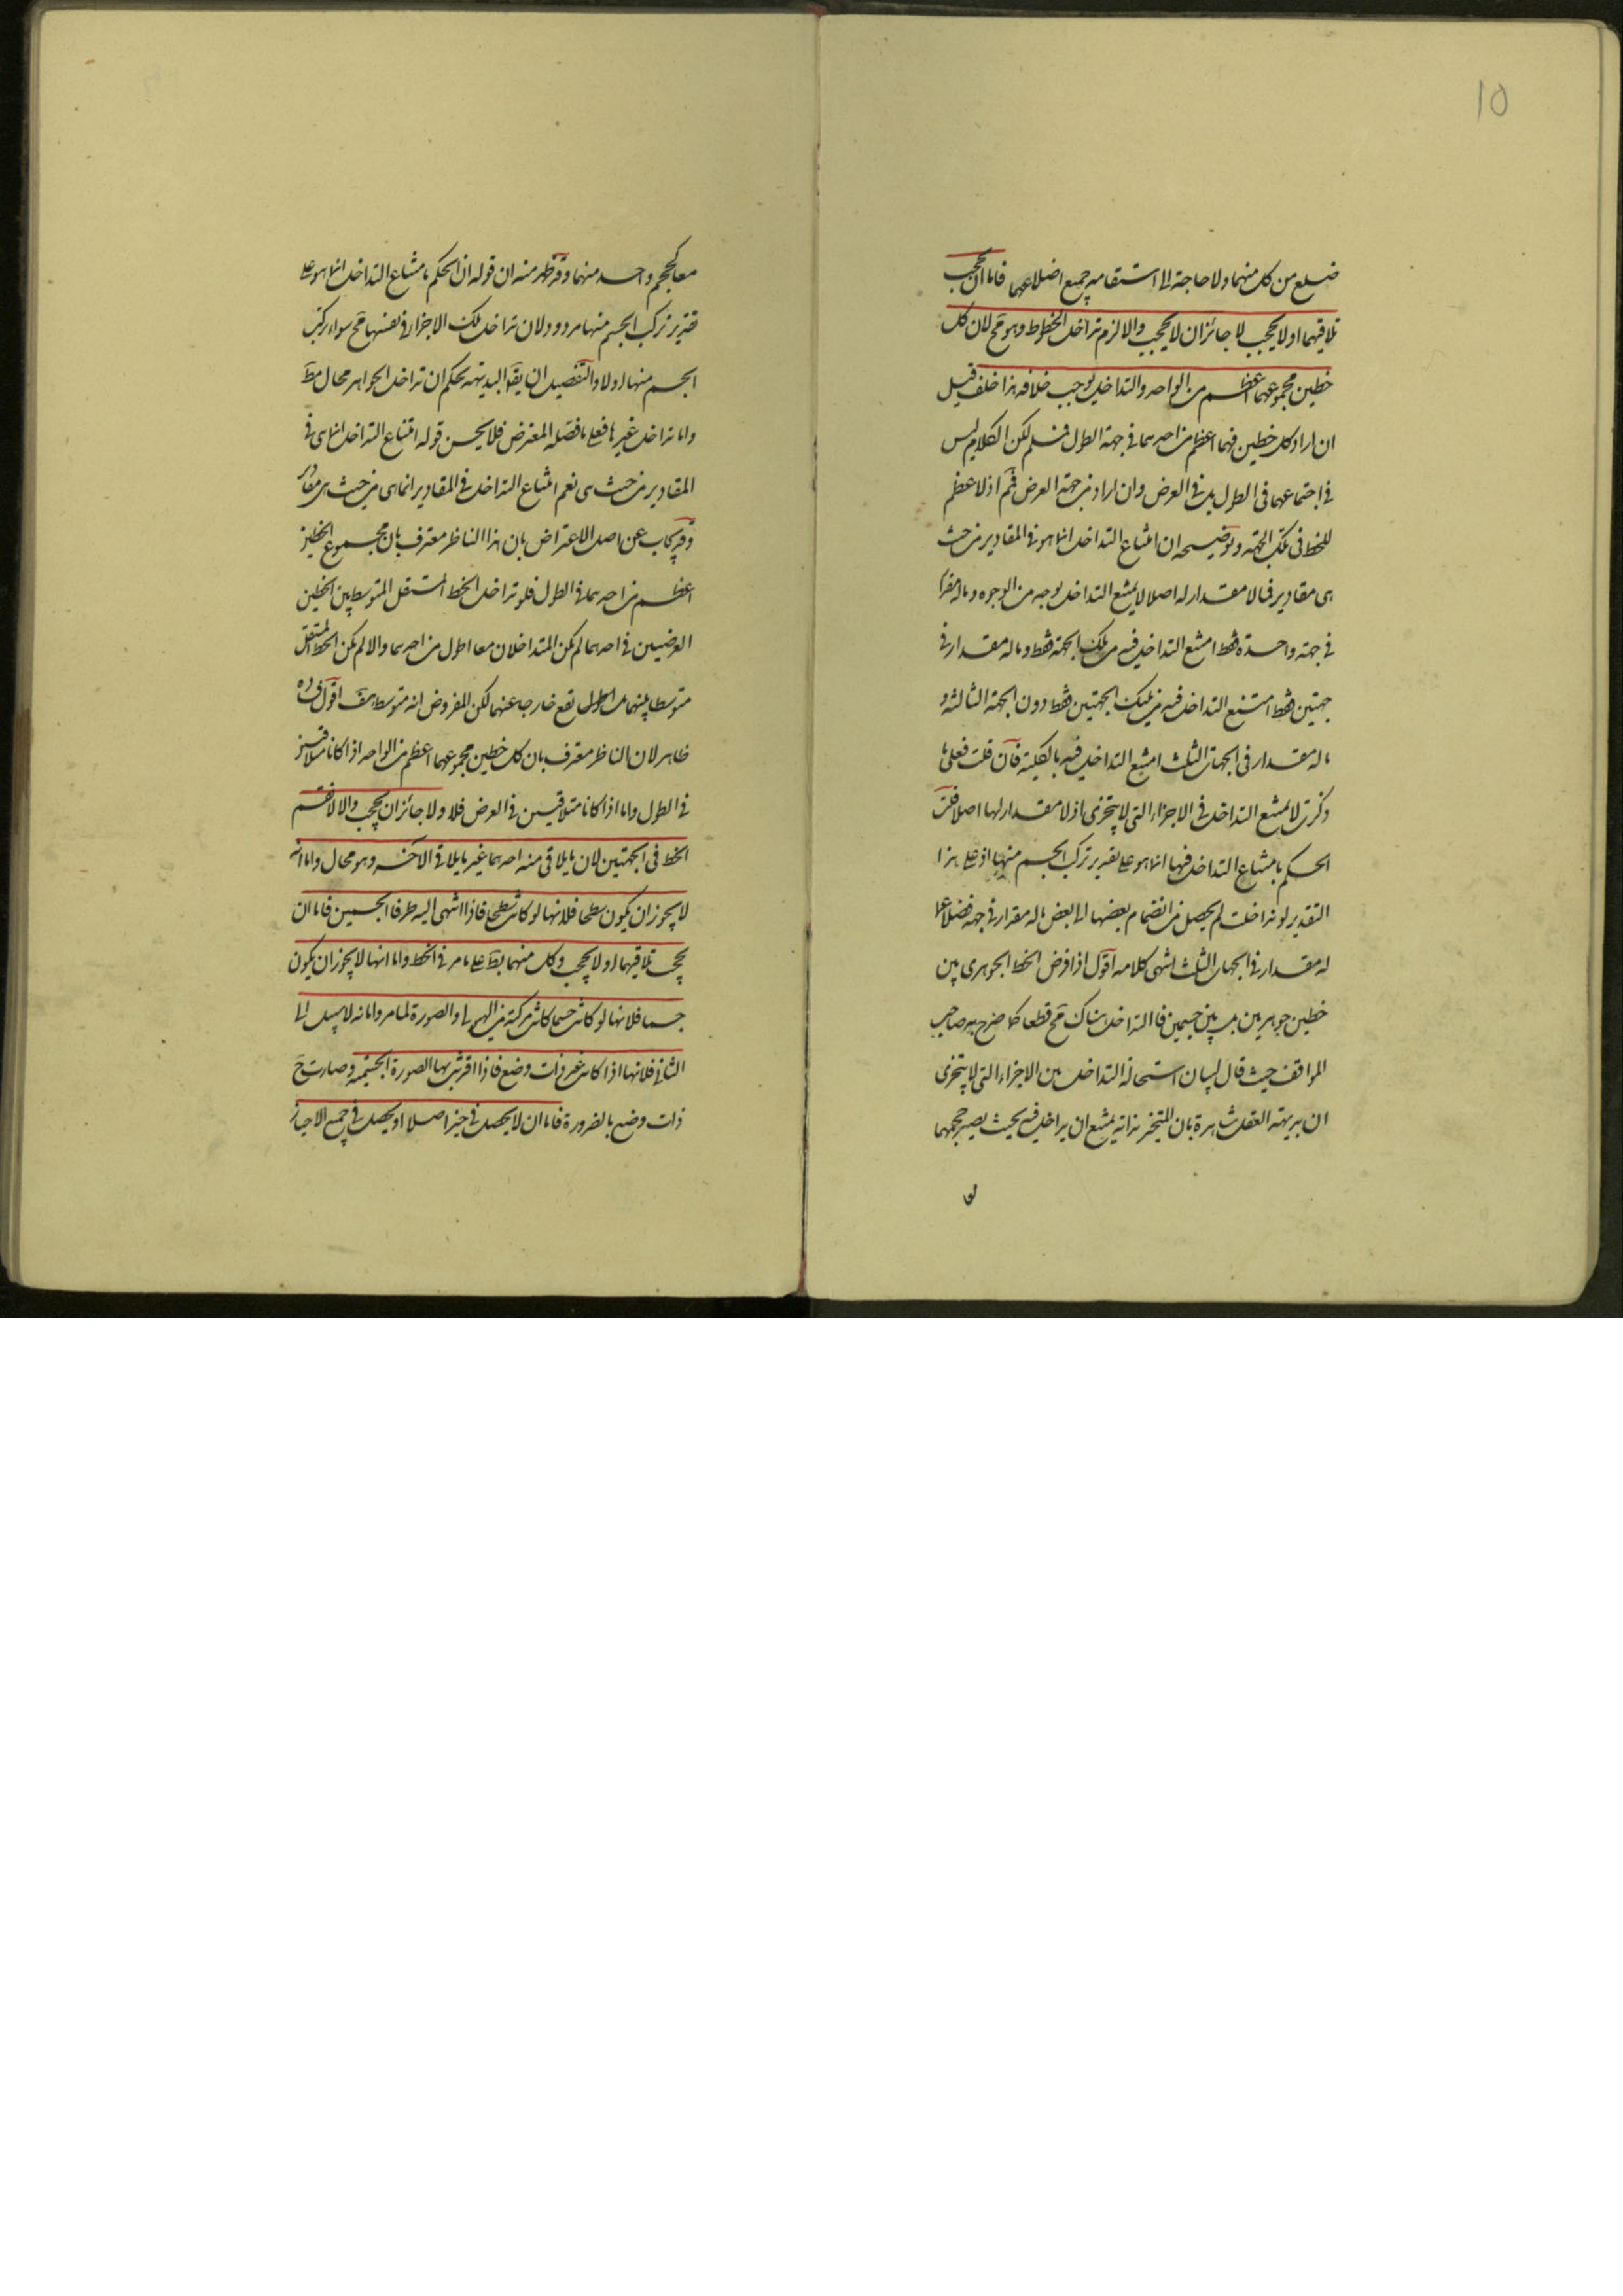 10
ضلع من كل منهما ولا حاجة الى استقامة جميع اضلاعهما فاما ان يحجب
تلاقيهما او لا يحجب لا جائز ان لا يحجب والا لزم تداخل الخطوط وهو مح لان كل
خطين مجموعهما اعظم من الواحد والتداخل يوجب خلافه هذا خلف قيل
ان اراد كل خطين فهما اعظم من احدهما في جهة الطول فمسلم لكن الكلام ليس
في اجتماعهما في الطول بل في العرض وان اراد من جهة العرض فمم اذ لا عظم
للخط في تلك الجهة وتوضيحه ان امتناع التداخل انما هو في المقادير من حيث
هي مقادير فما لا مقدار له اصلا لا يمتنع التداخل بوجه من الوجوه وما له مقدار
في جهة واحدة فقط امتنع التداخل فيه من تلك الجهة فقط وما له مقدار في
جهتين فقط امتنع التداخل فيه من تينك الجهتين فقط دون الجهة الثالثة و
ما له مقدار في الجهات الثلث امتنع التداخل فيه بالكلية فان قلت فعلى ما
ذكرت لا يمتنع التداخل في الاجزاء التي لا يتجزى اذ لا مقدار لها اصلا قلت
الحكم بامتناع التداخل فيها انما هو على تقدير تركب الجسم منها اذ على هذا
التقدير لو تداخلت لم يحصل من انضمام بعضها الى بعض ما له مقدار في جهة فضلا عما
له مقدار في الجهات الثلث انتهى كلامه اقول اذا فرض الخط الجوهري بين
خطين جوهريين بل بين جسمين فالتداخل هناك مح قطعا كما صرح به صاحب
المواقف حيث قال لبيان استحالة التداخل بين الاجزاء التي لا يتجزى
ان بديهة العقل شاهدة بان المتحيز بذاته يمتنع ان يداخل فيه بحيث يصير حجمهما
معا كحجم واحد منهما وقد ظهر منه ان قوله ان الحكم بامتناع التداخل انما هو على
تقدير تركب الجسم منها مردود لان تداخل تلك الاجزاء في نفسها مح سواء تركب
الجسم منها او لا والتفصيل ان يقا البديهة تحكم ان تداخل الجواهر محال مط
واما تداخل غيرها فعلى ما فصله المعترض فلا يحسن قوله امتناع التداخل انما هي في
المقادير من حيث هي نعم امتناع التداخل في المقادير انما هي من حيث هي مقادير
وقد يجاب عن اصل الاعتراض بان هذا الناظر معترف بان مجموع الخطين
اعظم من احدهما في الطول فلو تداخل الخط المستقل المتوسط بين الخطين
العرضيين في احدهما لم يكن المتداخلان معا اطول من احدهما والا لم يكن الخط المستقل
متوسطا بينهما بل اطول يقع خارجا عنهما لكن المفروض انه متوسط هف اقول فساده
ظاهر لان الناظر معترف بان كل خطين مجموعهما اعظم من الواحد اذا كانا متلاقيين
في الطول واما اذا كانا متلاقيين في العرض فلا ولا جائز ان يحجب والا لانقسم
الخط في الجهتين لان ما يلاقي منه احدهما غير ما يلاقي الآخر وهو محال واما انه
لا يجوز ان يكون سطحا فلانها لو كانت سطحا فاذا انتهى اليه طرفا الجسمين فاما ان
يحجب تلاقيهما او لا يحجب وكل منهما بط على ما مر في الخط واما انها لا يجوز ان يكون
جسما فلانها لو كانت جسما كانت مركبة من الهيولى والصورة لما مر واما انه لا سبيل الى
الثاني فلانها اذا كانت غير ذات وضع فاذا اقترنت بها الصورة الجسمية وصارت ح
ذات وضع بالضرورة فاما ان لا يحصل في حيز اصلا او يحصل في جميع الاحياز